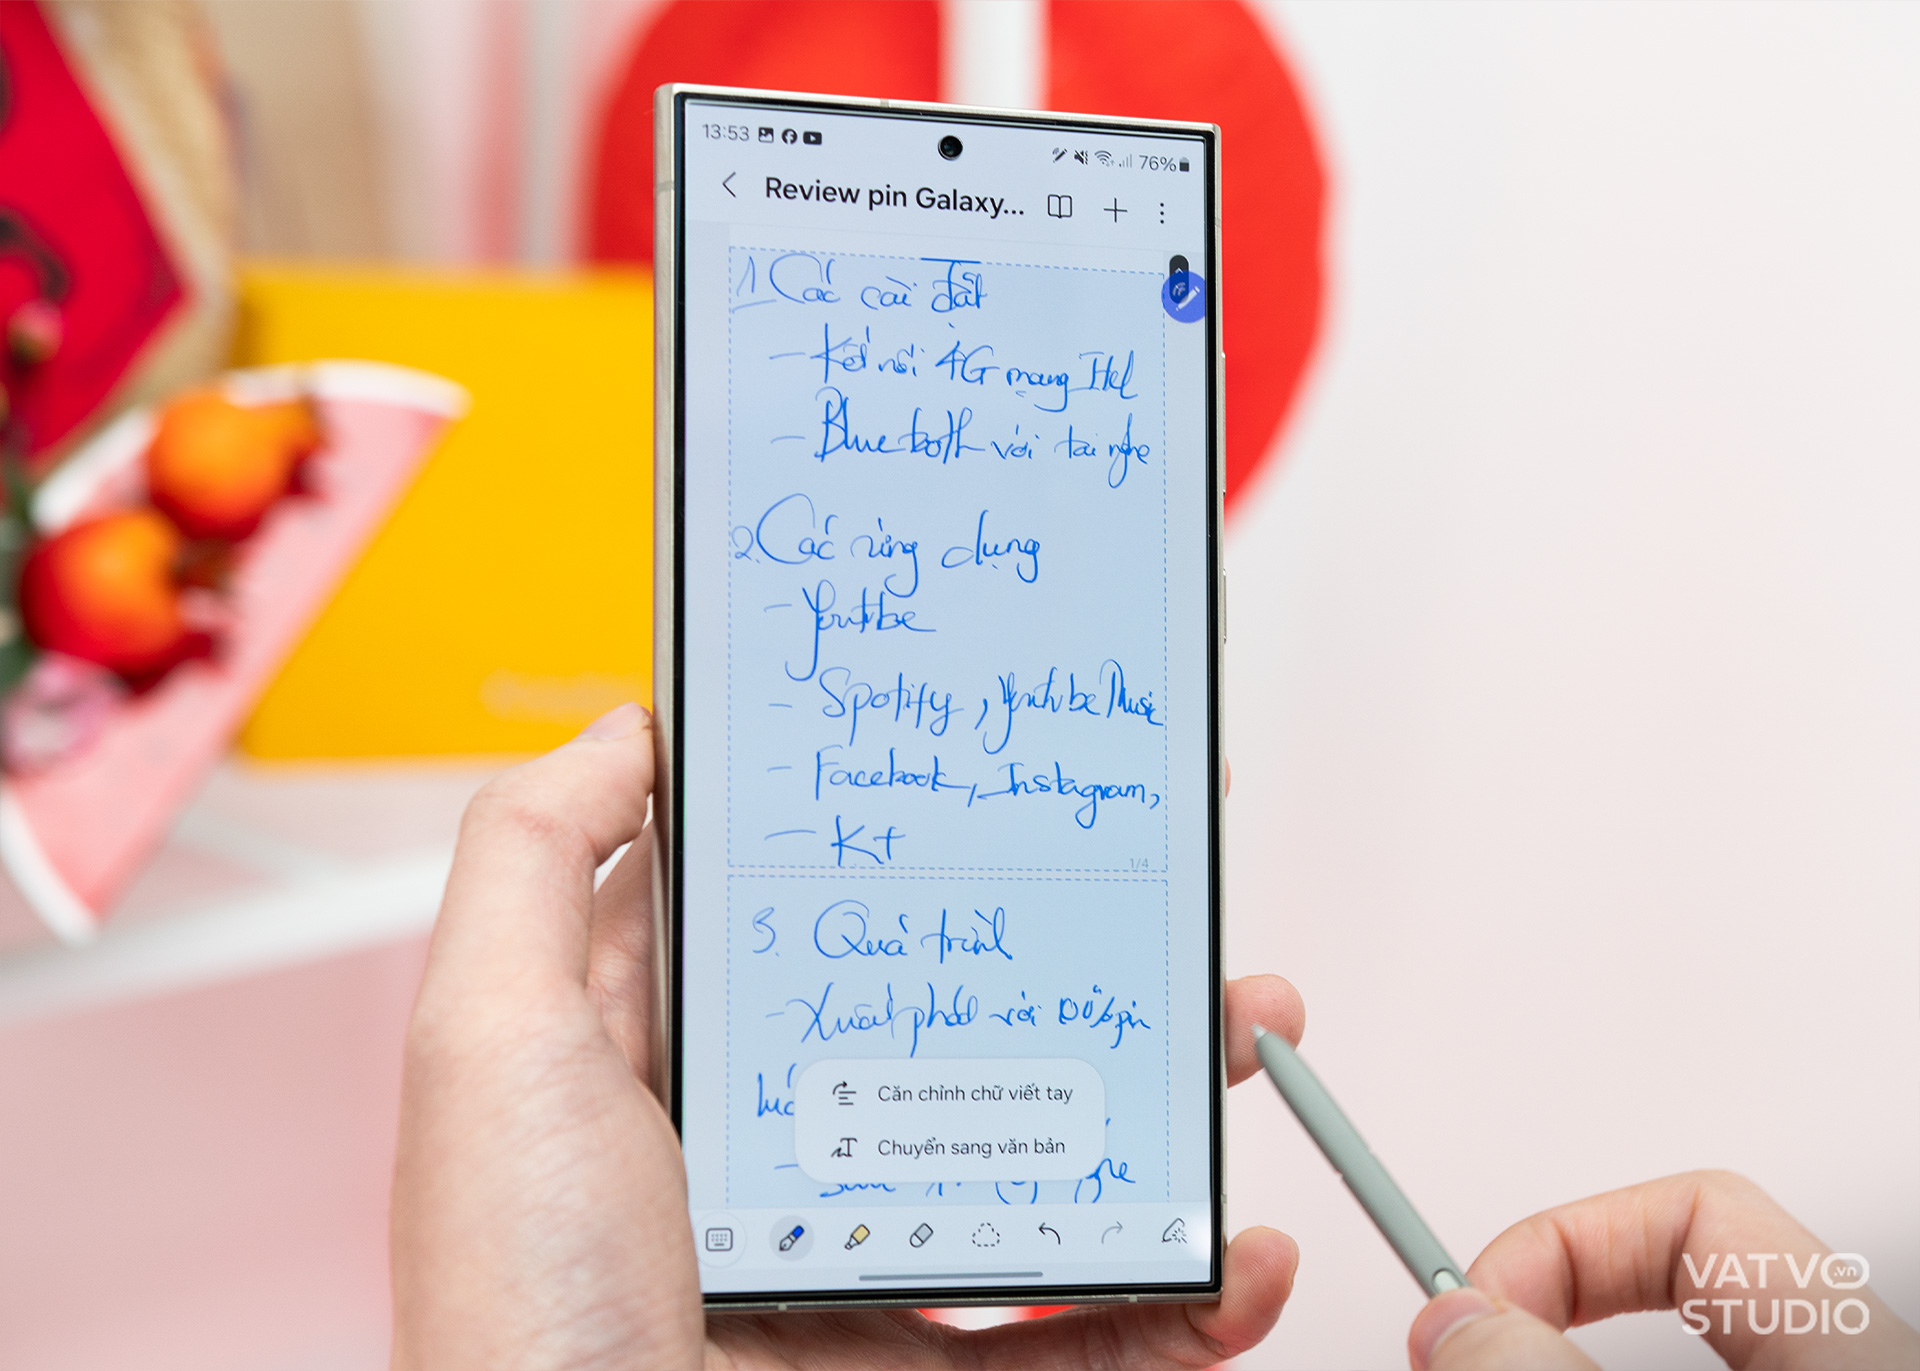 13:53
76%
Review pin Galaxy...
1 Các cài đặt
- Kết nối 4G mạng Itel
- Bluetooth với tai nghe
2. Các ứng dụng
- Youtube
- Spotify, Youtube Music
- Facebook, Instagram,
- KT
1/4
3. Quá trình
- Xuất phát với 100% pin
Căn chỉnh chữ viết tay
Chuyển sang văn bản
VATVO.vn
STUDIO